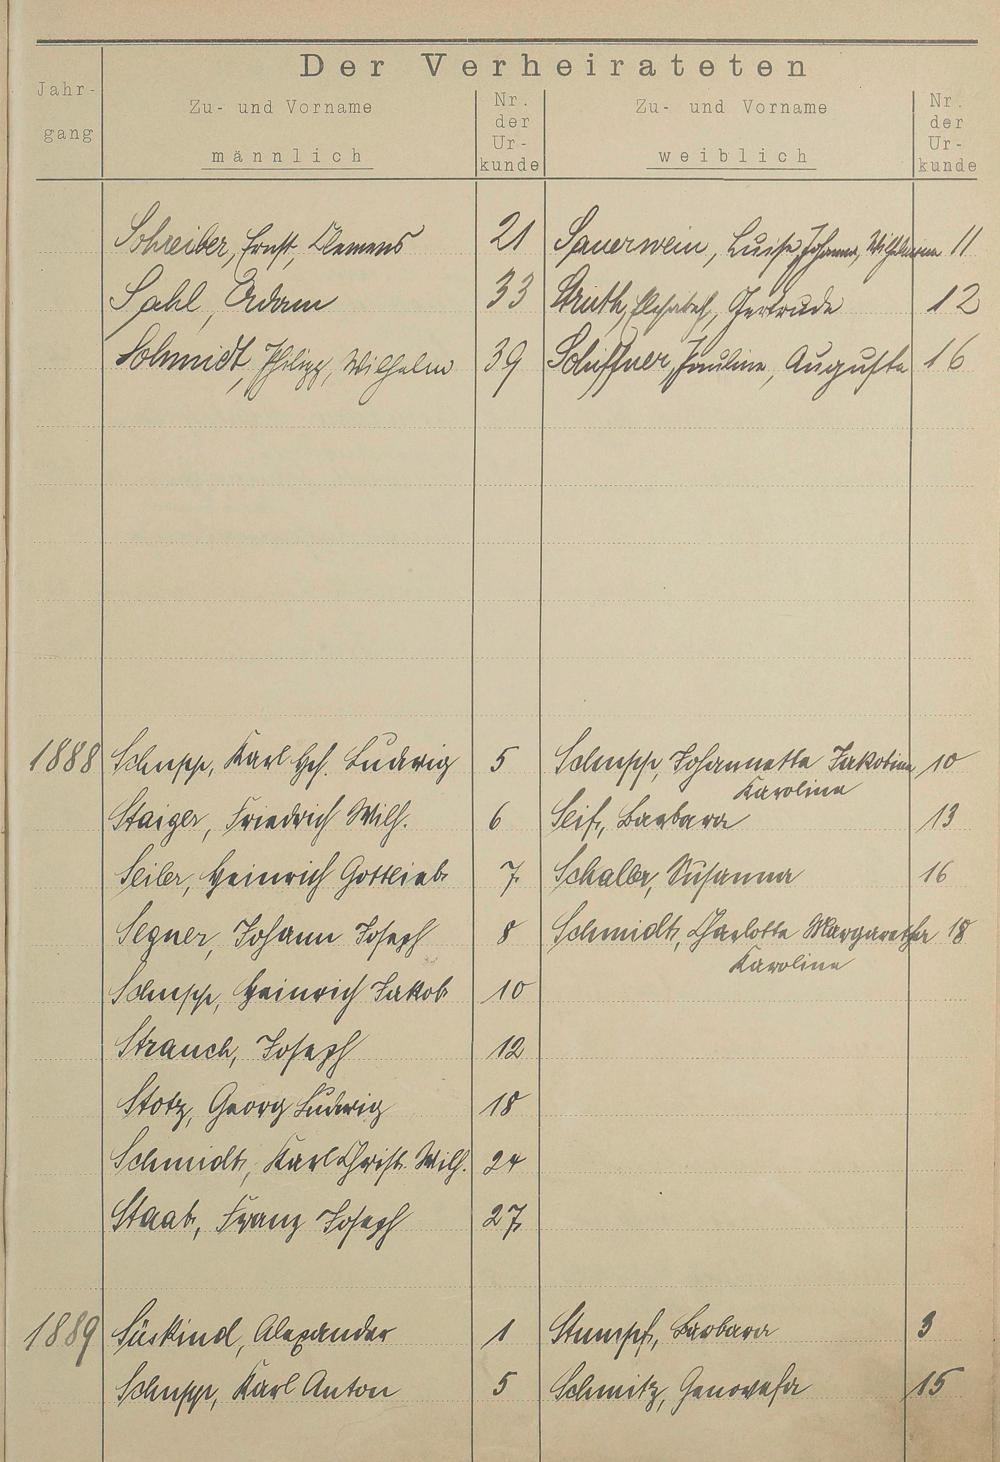 Der Verheirateten
Jahr-
gang
Zu- und Vorname
männlich
Nr.
der
Ur-
kunde
Zu- und Vorname
weiblich
Nr.
der
Ur-
kunde
Schreiber, Ernst, Clemens 21 Sauerwein, Luise, Johanna, Wilhelmine 11
Sahl, Adam 33 Struth, Elisabeth, Gertrude 12
Schmidt, Philipp, Wilhelm 39 Schiffner, Pauline, Auguste 16
1888 Schupp, Karl Hch. Ludwig 5 Schupp, Johannetta Jakobine 10
Karoline
Staiger, Friedrich Wilh. 6 Seif, Barbara 13
Seiler, Heinrich Gottlieb 7 Schalbr, Susanna 16
Segner, Johann Joseph 8 Schmidt, Charlotte Margaretha 18
Karoline
Schupp, Heinrich Jakob 10
Strauch, Joseph 12
Stotz, Georg Ludwig 18
Schmidt, Karl Christ. Wilh. 24
Staab, Franz Joseph 27
1889 Süskind, Alexander 1 Stumpf, Barbara 3
Schupp, Karl Anton 5 Schmitz, Genovefa 15